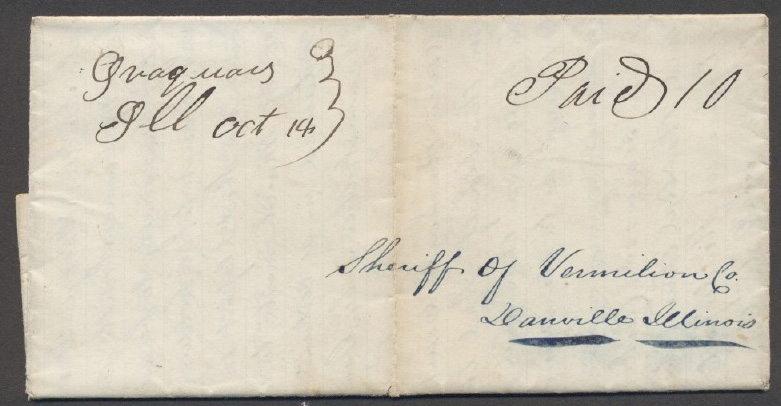 Iraquois
Ill Oct 14
Paid 10
Sheriff of Vermilion Co.
Danville Illinois